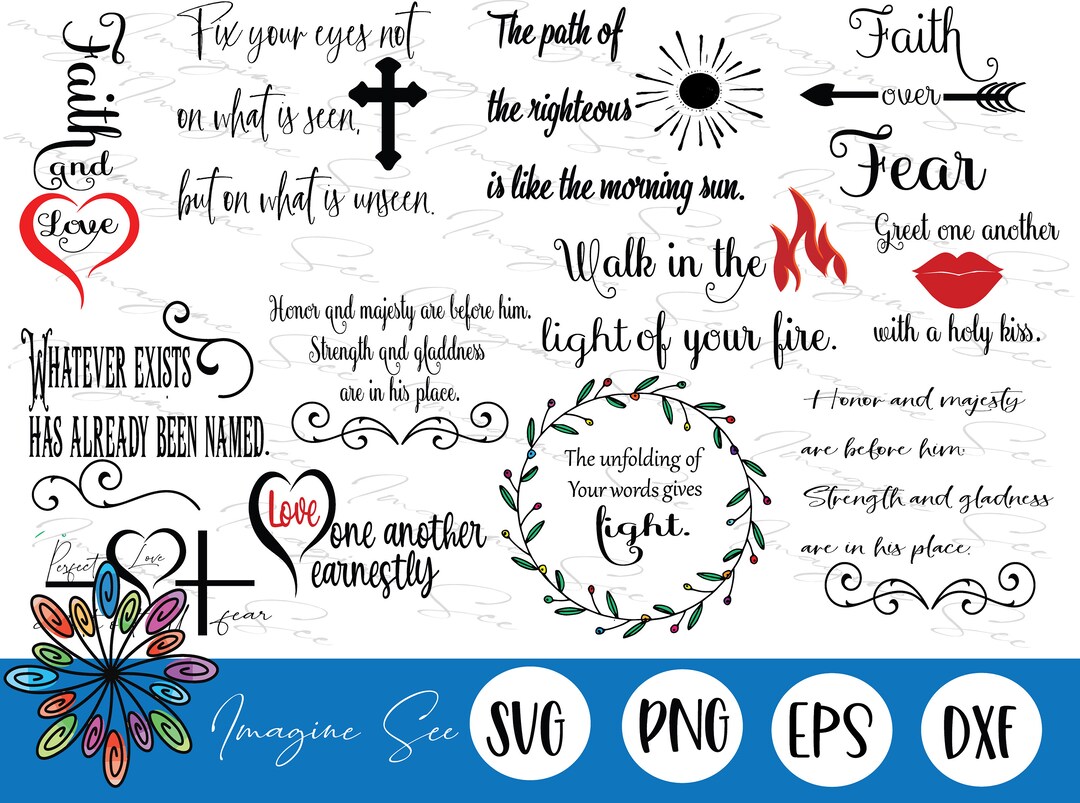 Faith
and
Love
Fix your eyes not
on what is seen,
but on what is unseen.
The path of
the righteous
is like the morning sun.
Faith
over
Fear
Walk in the
light of your fire.
Greet one another
with a holy kiss.
Whatever exists
has already been named.
Honor and majesty are before him.
Strength and gladdness
are in his place.
The unfolding of
Your words gives
light.
Honor and majesty
are before him.
Strength and gladness
are in his place.
Love
one another
earnestly
Perfect Love
fear
Imagine See
SVG
PNG
EPS
DXF